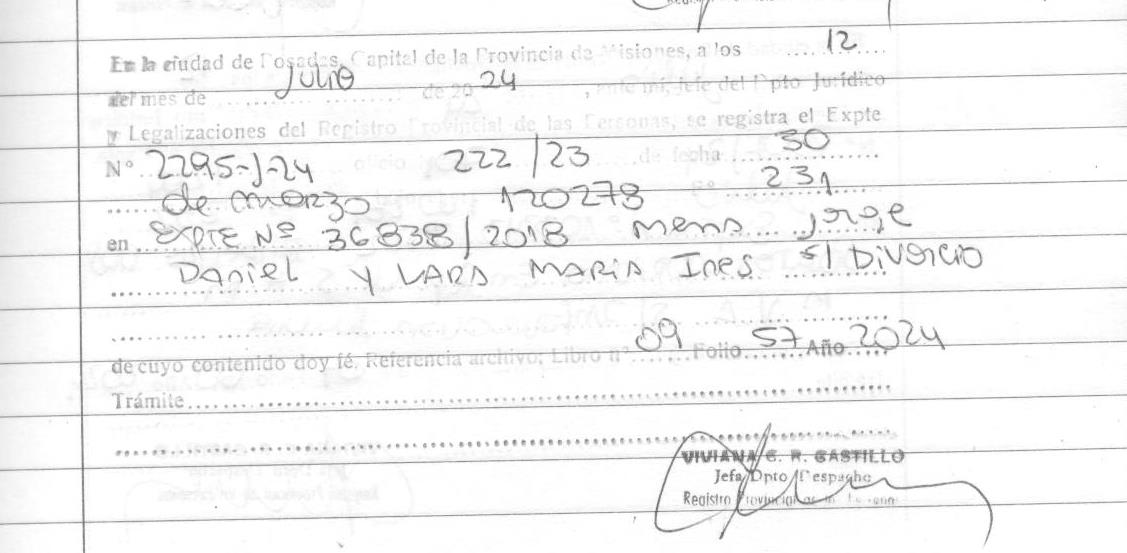 En la ciudad de Posadas, Capital de la Provincia de Misiones, a los 12
del mes de Julio de 2024, ante mí, Jefe del Dpto Jurídico
y Legalizaciones del Registro Provincial de las Personas, se registra el Expte
Nº 2295-J-24 oficio 222/23 de fecha 30
de marzo 120278 231
en EXPTE Nº 36838/2018 Mens Jorge
Daniel y LARA MARIA Ines S/ Divorcio
de cuyo contenido doy fé. Referencia archivo: Libro nº 09 Folio 57 Año 2024
Trámite
VIVIANA C. R. CASTILLO
Jefa Dpto Despacho
Registro Provincial de las Personas